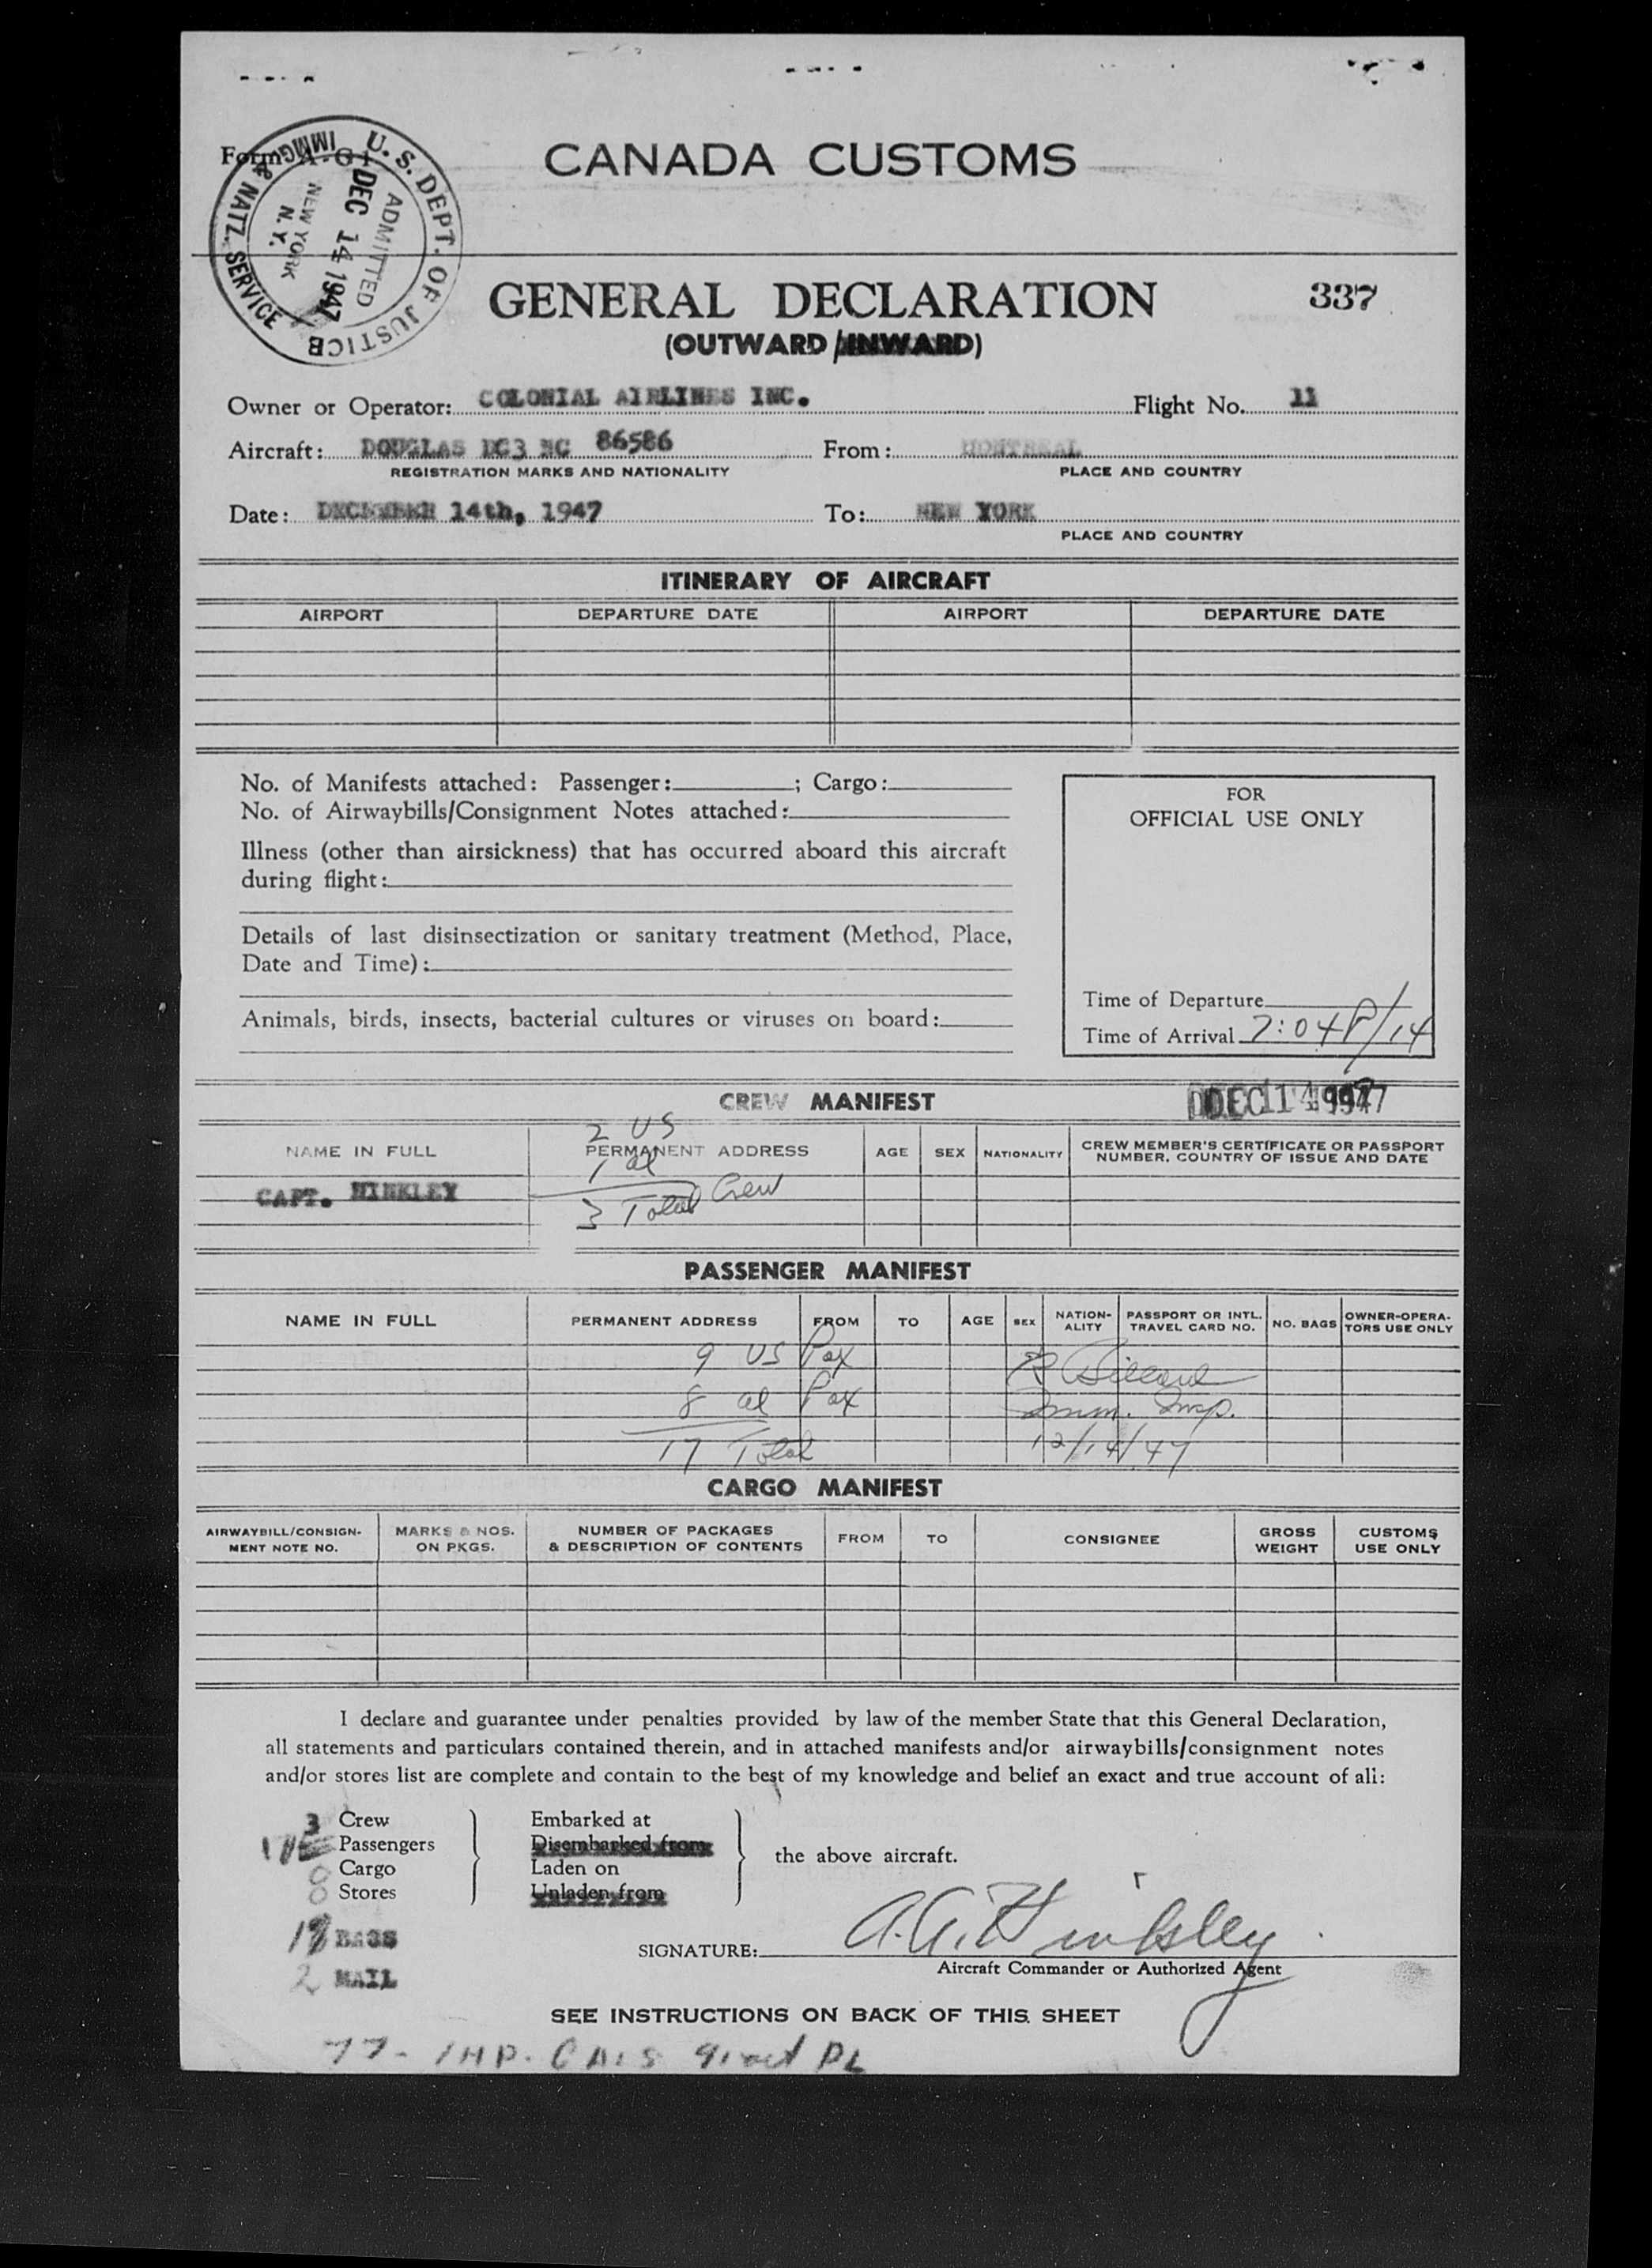 CANADA CUSTOMS
Form A-G1
U. S. DEPT. OF JUSTICE
IMMIG. & NATZ. SERVICE
ADMITTED
DEC 14 1947
NEW YORK
N. Y.
GENERAL DECLARATION 337
(OUTWARD/INWARD)
Owner or Operator: COLONIAL AIRLINES INC. Flight No. 11
Aircraft: DOUGLAS DC3 NC 86586 From: MONTREAL
REGISTRATION MARKS AND NATIONALITY PLACE AND COUNTRY
Date: DECEMBER 14th, 1947 To: NEW YORK
PLACE AND COUNTRY
ITINERARY OF AIRCRAFT
AIRPORT DEPARTURE DATE AIRPORT DEPARTURE DATE
No. of Manifests attached: Passenger: ; Cargo:
No. of Airwaybills/Consignment Notes attached:
Illness (other than airsickness) that has occurred aboard this aircraft
during flight:
Details of last disinsectization or sanitary treatment (Method, Place,
Date and Time):
Animals, birds, insects, bacterial cultures or viruses on board:
FOR
OFFICIAL USE ONLY
Time of Departure
Time of Arrival 7:04P/14
CREW MANIFEST DEC 14 1947
2 US
NAME IN FULL PERMANENT ADDRESS AGE SEX NATIONALITY CREW MEMBER'S CERTIFICATE OR PASSPORT
NUMBER, COUNTRY OF ISSUE AND DATE
1 al
CAPT. HINKLEY
3 Total Crew
PASSENGER MANIFEST
NAME IN FULL PERMANENT ADDRESS FROM TO AGE SEX NATION-
ALITY PASSPORT OR INTL.
TRAVEL CARD NO. NO. BAGS OWNER-OPERA-
TORS USE ONLY
9 US Pax
8 al Pax Imm. Insp.
17 Total 12/14/47
CARGO MANIFEST
AIRWAYBILL/CONSIGN-
MENT NOTE NO. MARKS & NOS.
ON PKGS. NUMBER OF PACKAGES
& DESCRIPTION OF CONTENTS FROM TO CONSIGNEE GROSS
WEIGHT CUSTOMS
USE ONLY
I declare and guarantee under penalties provided by law of the member State that this General Declaration,
all statements and particulars contained therein, and in attached manifests and/or airwaybills/consignment notes
and/or stores list are complete and contain to the best of my knowledge and belief an exact and true account of all:
3 Crew Embarked at
Passengers Disembarked from
the above aircraft.
0 Cargo Laden on
0 Stores Unladen from
BAGS
2 MAIL
SIGNATURE: A.A. Hinksley
Aircraft Commander or Authorized Agent
SEE INSTRUCTIONS ON BACK OF THIS SHEET